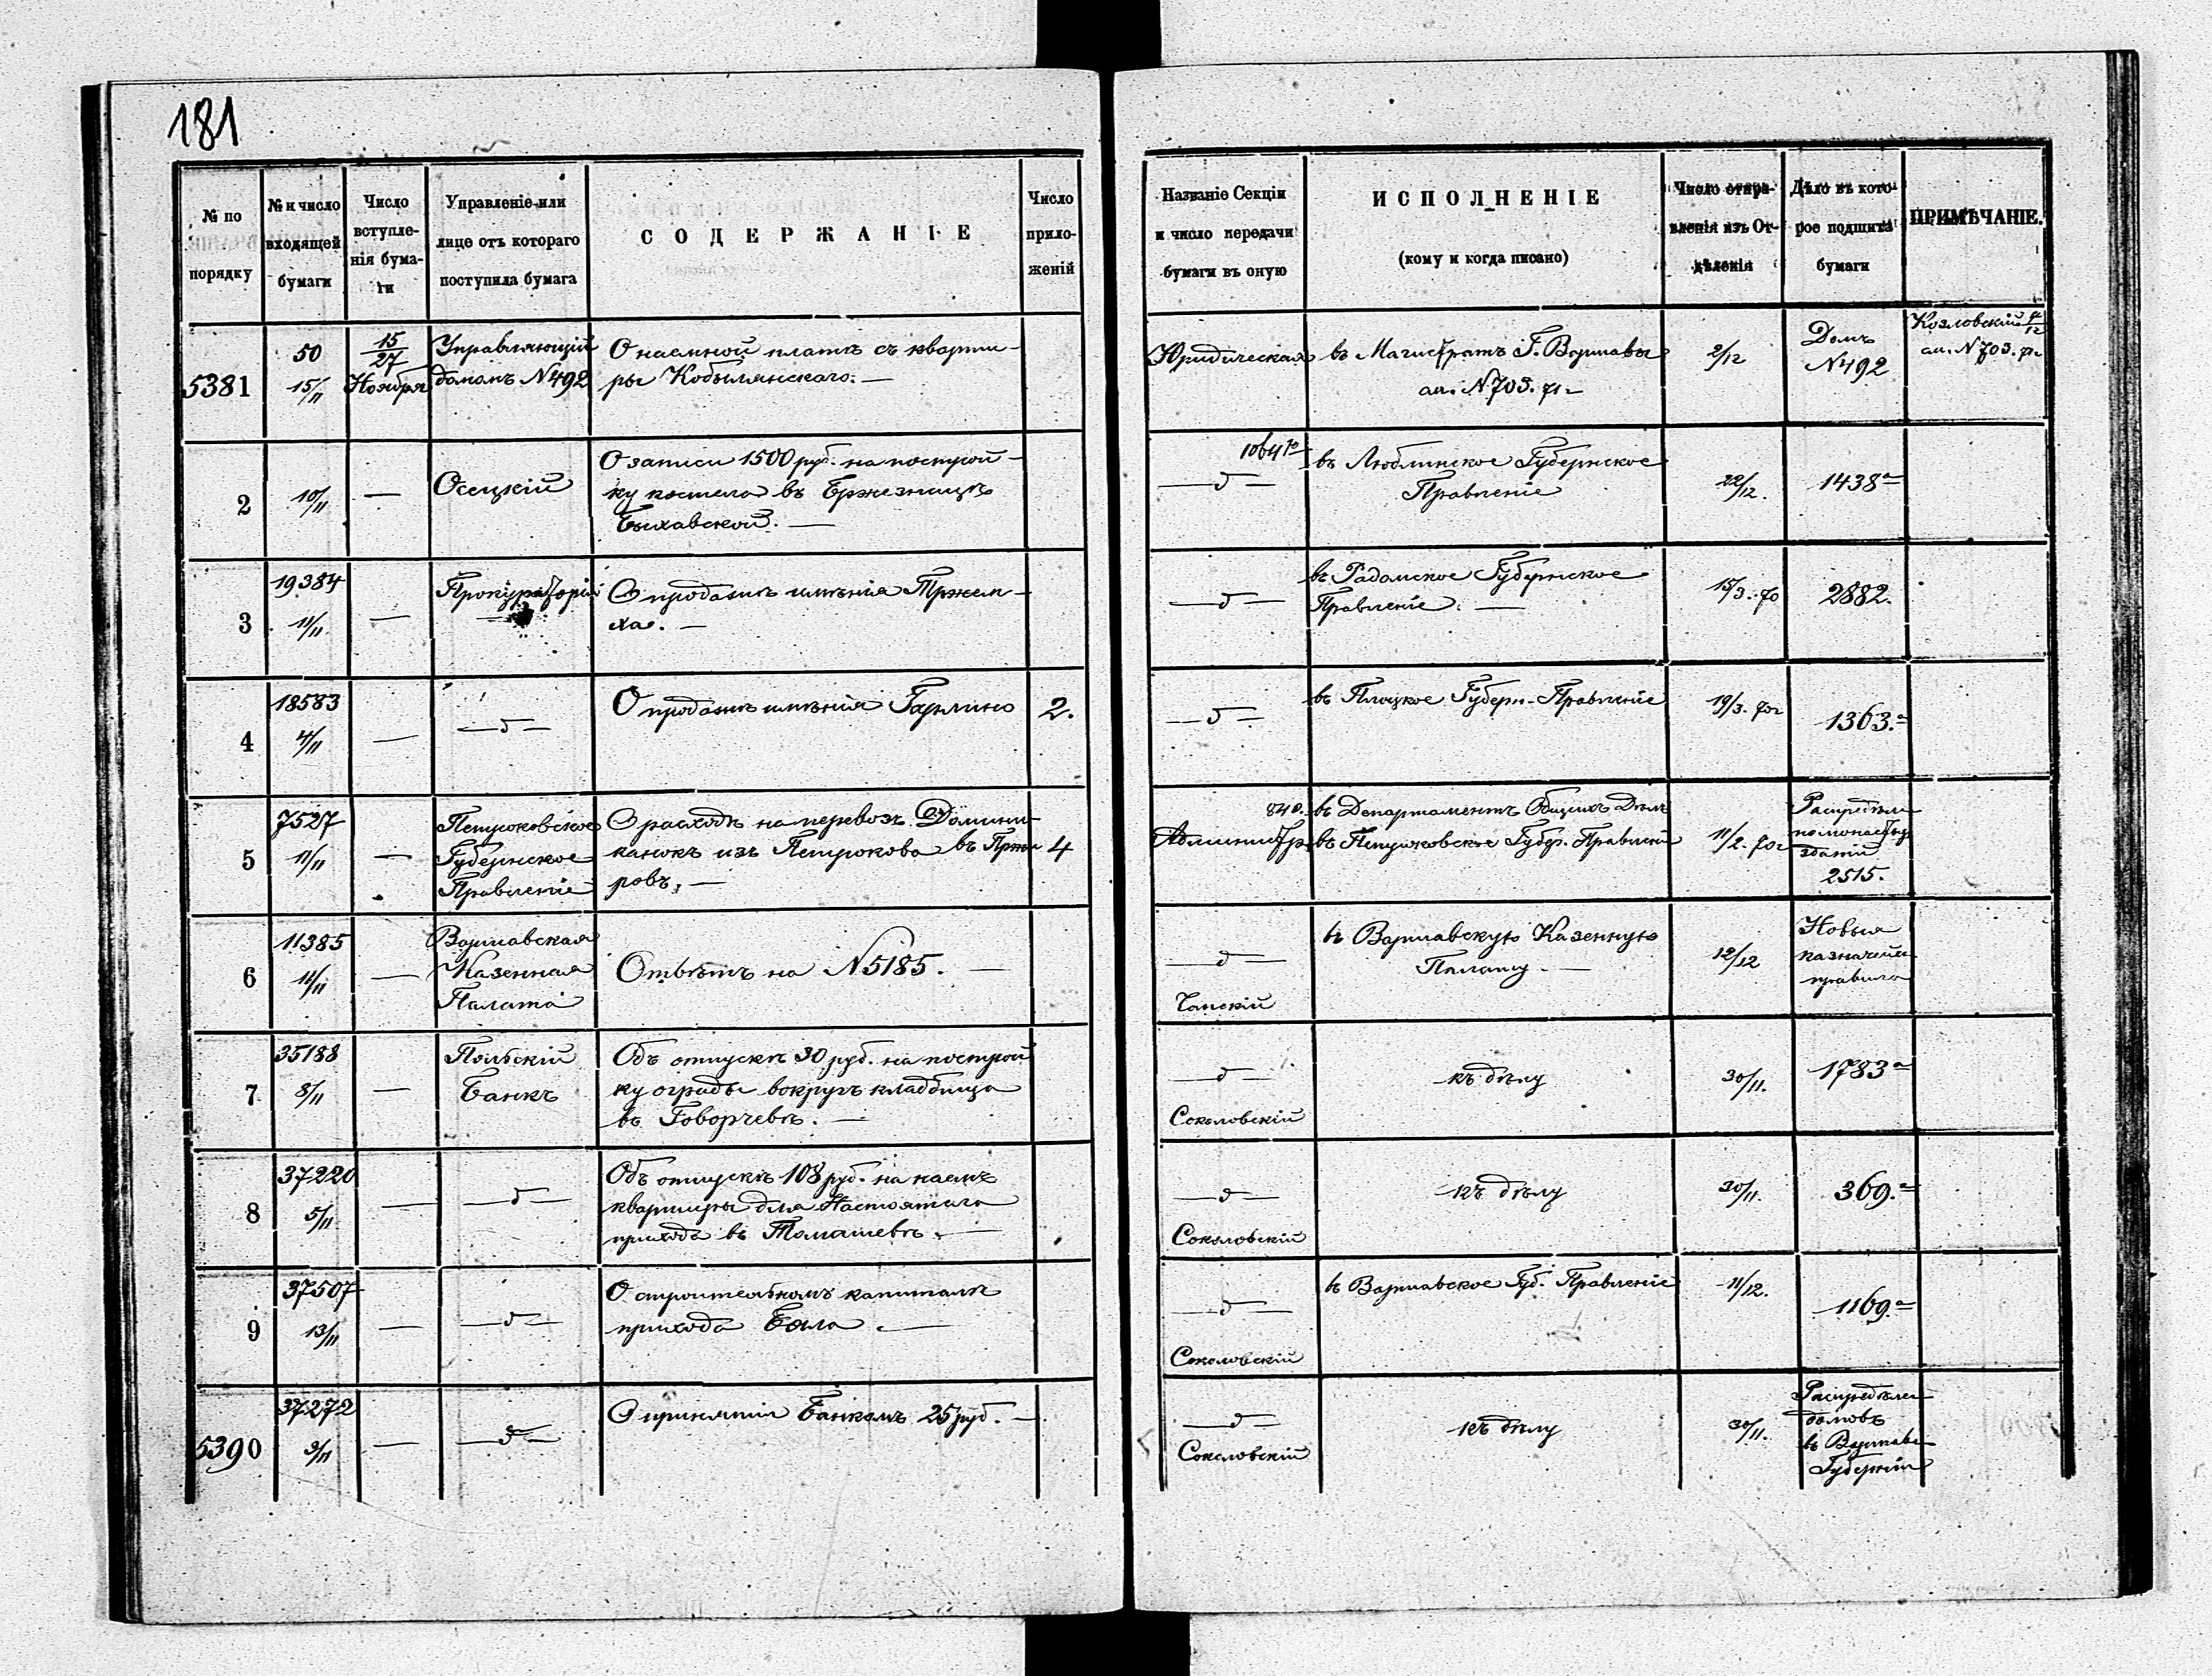 181
№ по порядку
№ и число входящей бумаги
Число вступленія бумаги
Управленіе или лице отъ котораго поступила бумага
СОДЕРЖАНІЕ
Число приложеній
Названіе Секціи и число передачи бумаги въ оную
ИСПОЛНЕНІЕ
(кому и когда писано)
Число отправленія изъ Отдѣленія
Дѣло въ которое подшита бумаги
ПРИМѢЧАНІЕ.
5381
50
15/11
15/27
Ноября
Управляющій
домомъ N492
О наемной платѣ съ кварти-
ры Кобылянскаго. —
Юридическая
въ Магистратъ Г. Варшавы
N 703. 71
2/12
Домъ
N492
Козловскій
N 703.
2
10/11
—
Осецкій
О записи 1500 руб. на построй-
ку костела въ Бржезницѣ
Быхавской. —
— д —
въ Люблинское Губернское
Правленіе
22/12.
1438 а
3
19384
11/11
—
Прокураторія
О продажѣ имѣнія
— д —
въ Радомское Губернское
Правленіе. —
15/3. 70
2882.
4
18583
4/11
—
— д —
О продажѣ имѣнія Гарлино
2.
— д —
въ Плоцкое Губерн. Правленіе
19/3. 70
1363. а
5
7527
11/11
—
Петроковское
Губернское
Правленіе
О расходѣ на перевозъ Домини-
канокъ изъ Петрокова въ
ровъ. —
4
840.
Администр.
въ Департаментъ Общихъ Дѣлъ
въ Петроковское Губер. Правленіе
11/2. 70
зданій
2515.
6
11385
11/11
—
Варшавская
Казенная
Палата
Отвѣтъ на N5185. —
— д —
въ Варшавскую Казенную
Палату. —
12/12
Новыя
правила
7
35188
8/11
—
Польскій
Банкъ
Объ отпускѣ 30 руб. на построй
ку ограды вокругъ кладбища
въ Говорчевѣ. —
— д —
Соколовскій
къ дѣлу
30/11.
1783 а
8
37220
5/11
—
— д —
Объ отпускѣ 108 руб. на наемъ
квартиры для Настоятеля
прихода въ Томашевѣ. —
— д —
Соколовскій
къ дѣлу
30/11.
369. а
9
37507
13/11
—
— д —
О строительномъ капиталѣ
прихода Бяла. —
— д —
Соколовскій
въ Варшавское Губ. Правленіе
11/12.
1169. а
5390
37272
9/11
—
— д —
О принятіи Банкомъ 25 руб. —
— д —
Соколовскій
къ дѣлу
30/11.
Распредѣлен
домовъ
въ Варшавс
Губерніи